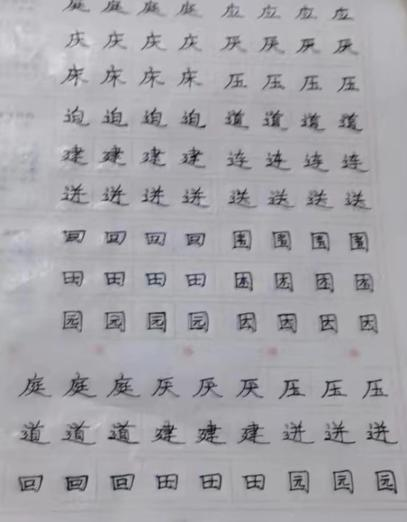 庭 庭 庭 庭 应 应 应 应
庆 庆 庆 庆 厌 厌 厌 厌
床 床 床 床 压 压 压 压
迫 迫 迫 迫 道 道 道 道
建 建 建 建 连 连 连 连
迸 迸 迸 迸 送 送 送 送
回 回 回 回 围 围 围 围
田 田 田 田 困 困 困 困
园 园 园 园 因 因 因 因
庭 庭 庭 厌 厌 厌 压 压 压
道 道 道 建 建 建 迸 迸 迸
回 回 回 田 田 田 园 园 园